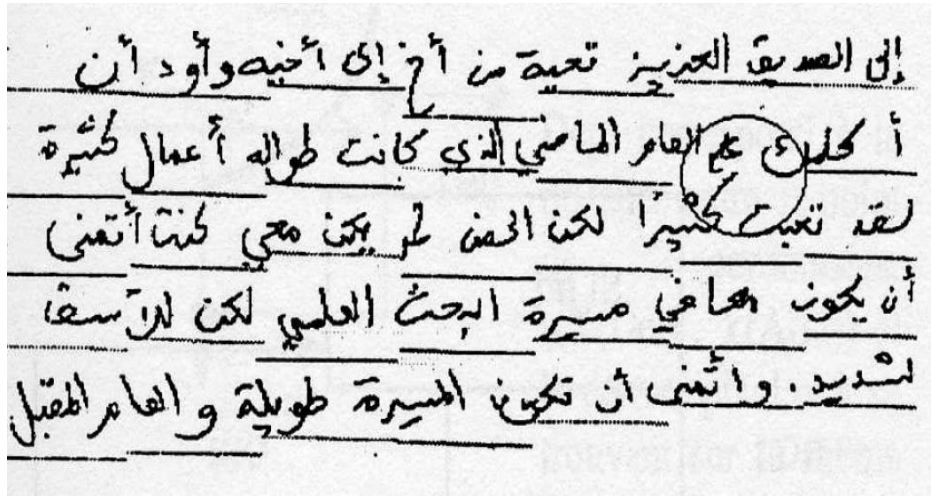 إلى الصديق العزيز تحية من أخ إلى أخيه وأود أن
أكلمك عن العام الماضي الذي كانت طواله أعمال كثيرة
لقد تعبت كثيرأ لكن الحض لم يكن معي كنت أتمنى
أن يكون معا في مسيرة البحث العلمي لكن للأسف
لشديد. وأتمنى أن تكون المسيرة طويلة و العام المقبل